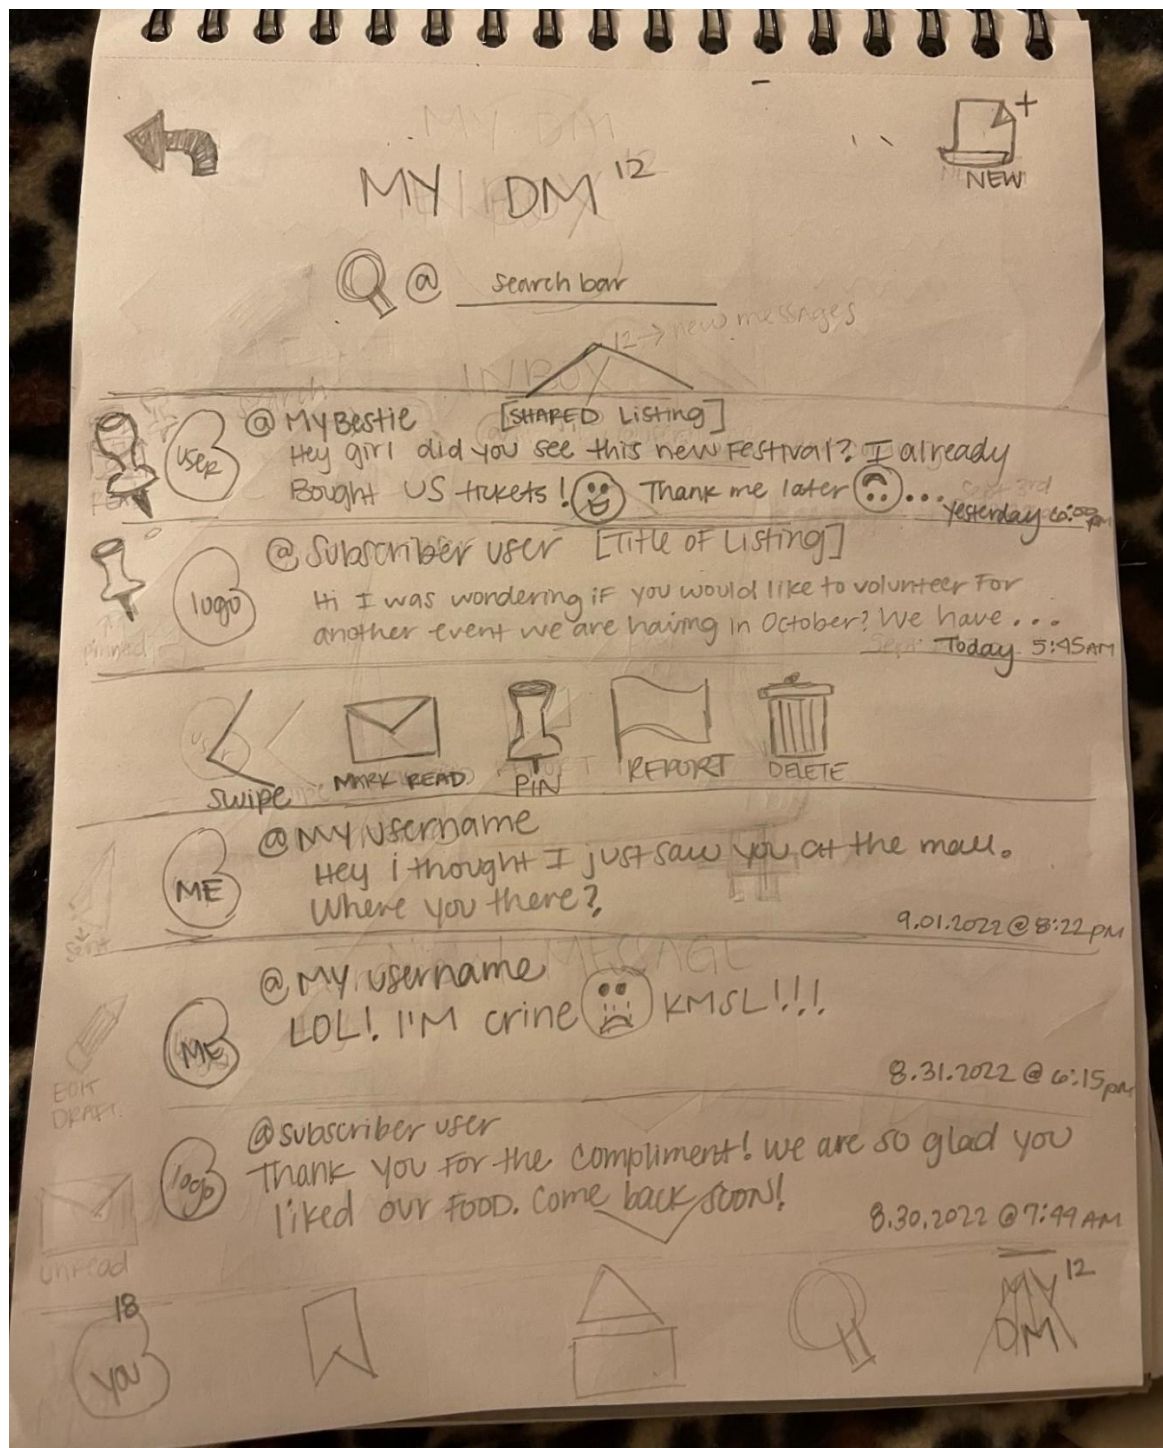 MY DM 12
NEW
@ search bar
12 → new messages
INBOX
@ MyBestie [SHARED Listing]
USER
Hey girl did you see this new Festival? I already
Bought US tickets! Thank me later ...
Yesterday 6:00 pm
@ Subscriber user [Title of Listing]
logo
Hi I was wondering if you would like to volunteer For
another event we are having in October? We have ...
pinned
Today 5:45AM
swipe
MARK READ
PIN
REPORT
DELETE
@ My username
ME
Hey i thought I just saw you at the mall.
Where you there?
9.01.2022 @ 8:22pm
Sent
MESSAGE
@ My username
ME
LOL! I'M crine KMSL!!!
8.31.2022 @ 6:15pm
EDIT
DRAFT
@subscriber user
logo
Thank you For the compliment! We are so glad you
liked our FOOD. Come back SOON!
8.30.2022 @ 7:49AM
unread
18
you
MY 12
DM